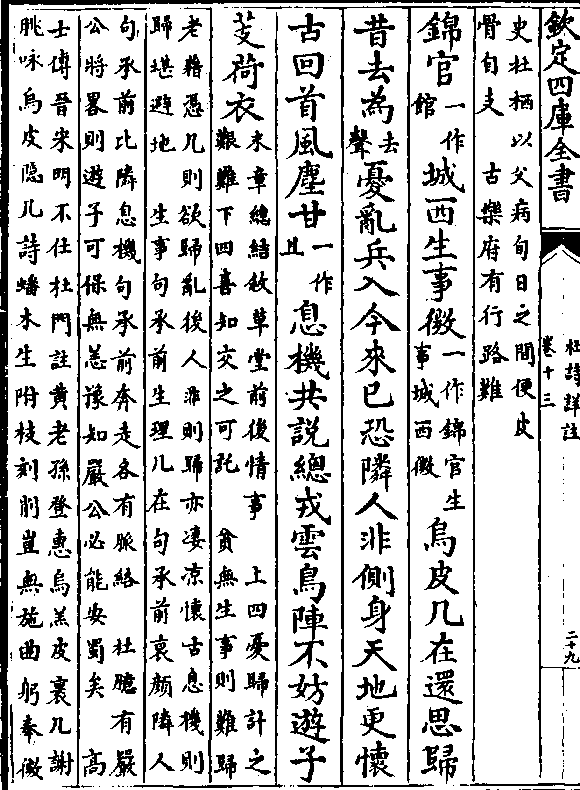 欽定四庫全書
杜詩詳註
卷十三
二十九
史杜栖以父病旬日之間便皮
骨自支　古樂府有行路難
錦官一作館城西生事微一作錦官生事城西微烏皮几在還思歸
昔去為去聲憂亂兵入今來已恐隣人非側身天地更懷
古回首風塵甘一作且息機共説總戎雲鳥陣不妨遊子
芰荷衣末章總結敘草堂前後情事　上四憂歸計之艱難下四喜知交之可託　貧無生事則難歸
老藉憑几則欲歸亂後人非則歸亦凄凉懷古息機則
歸堪避地　生事句承前生理几在句承前衰顔隣人
句承前比隣息機句承前奔走各有脈絡　杜臆有嚴
公將畧則遊子可保無恙豫知嚴公必能安蜀矣　高
士傳晉宋明不仕杜門註黄老孫登惠烏羔皮裹几謝
朓咏烏皮隱几詩蟠木生附枝刻削豈無施曲躬奉微